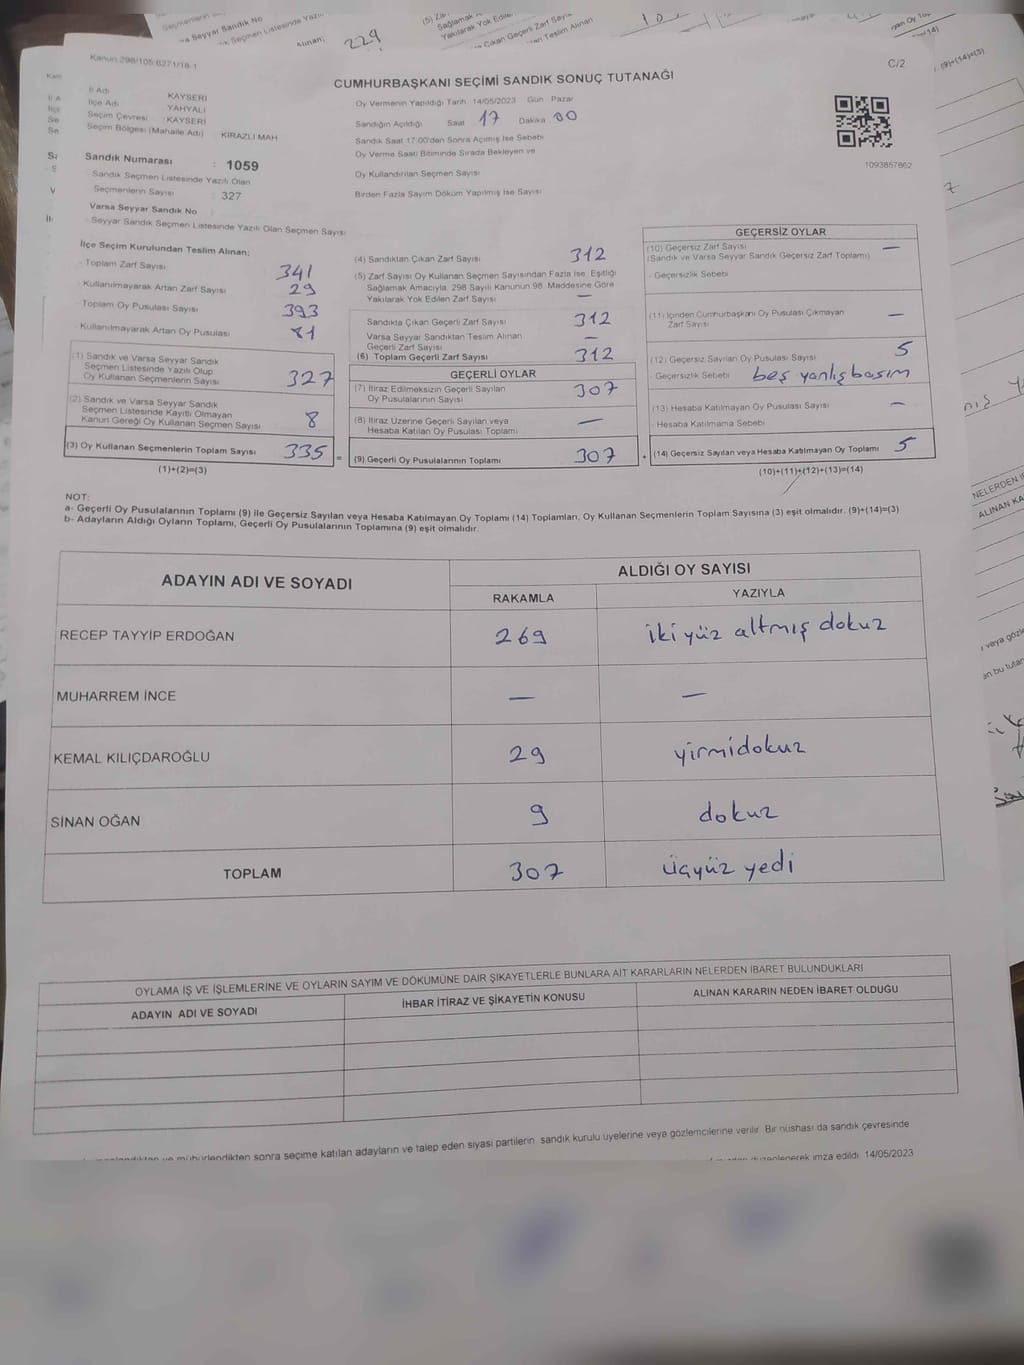 Kanun 298/105:6271/18-1
C/2
CUMHURBAŞKANI SEÇİMİ SANDIK SONUÇ TUTANAĞI
İl Adı KAYSERİ
İlçe Adı YAHYALI
Seçim Çevresi : KAYSERİ
Seçim Bölgesi (Mahalle Adı) KIRAZLI MAH
Sandık Numarası : 1059
Sandık Seçmen Listesinde Yazılı Olan
Seçmenlerin Sayısı : 327
Varsa Seyyar Sandık No
Seyyar Sandık Seçmen Listesinde Yazılı Olan Seçmen Sayısı
Oy Vermenin Yapıldığı Tarih 14/05/2023 Gün Pazar
Sandığın Açıldığı Saat 17 Dakika 00
Sandık Saat 17:00'dan Sonra Açılmış İse Sebebi
Oy Verme Saati Bitiminde Sırada Bekleyen ve
Oy Kullandırılan Seçmen Sayısı
Birden Fazla Sayım Döküm Yapılmış İse Sayısı
1093857862
İlçe Seçim Kurulundan Teslim Alınan;
- Toplam Zarf Sayısı 341
- Kullanılmayarak Artan Zarf Sayısı 29
- Toplam Oy Pusulası Sayısı 393
- Kullanılmayarak Artan Oy Pusulası 81
(1) Sandık ve Varsa Seyyar Sandık
Seçmen Listesinde Yazılı Olup
Oy Kullanan Seçmenlerin Sayısı 327
(2) Sandık ve Varsa Seyyar Sandık
Seçmen Listesinde Kayıtlı Olmayan
Kanun Gereği Oy Kullanan Seçmen Sayısı 8
(3) Oy Kullanan Seçmenlerin Toplam Sayısı 335 =
(1)+(2)=(3)
(4) Sandıktan Çıkan Zarf Sayısı 312
(5) Zarf Sayısı Oy Kullanan Seçmen Sayısından Fazla İse, Eşitliği
Sağlamak Amacıyla, 298 Sayılı Kanunun 98. Maddesine Göre
Yakılarak Yok Edilen Zarf Sayısı —
Sandıkta Çıkan Geçerli Zarf Sayısı 312
Varsa Seyyar Sandıktan Teslim Alınan
Geçerli Zarf Sayısı —
(6) Toplam Geçerli Zarf Sayısı 312
GEÇERLİ OYLAR
(7) İtiraz Edilmeksizin Geçerli Sayılan
Oy Pusulalarının Sayısı 307
(8) İtiraz Üzerine Geçerli Sayılan veya
Hesaba Katılan Oy Pusulası Toplamı —
(9) Geçerli Oy Pusulalarının Toplamı 307 +
GEÇERSİZ OYLAR
(10) Geçersiz Zarf Sayısı —
(Sandık ve Varsa Seyyar Sandık Geçersiz Zarf Toplamı)
- Geçersizlik Sebebi
(11) İçinden Cumhurbaşkanı Oy Pusulası Çıkmayan
Zarf Sayısı —
(12) Geçersiz Sayılan Oy Pusulası Sayısı 5
- Geçersizlik Sebebi beş yanlış basım
(13) Hesaba Katılmayan Oy Pusulası Sayısı —
- Hesaba Katılmama Sebebi
(14) Geçersiz Sayılan veya Hesaba Katılmayan Oy Toplamı 5
(10)+(11)+(12)+(13)=(14)
NOT:
a- Geçerli Oy Pusulalarının Toplamı (9) ile Geçersiz Sayılan veya Hesaba Katılmayan Oy Toplamı (14) Toplamları, Oy Kullanan Seçmenlerin Toplam Sayısına (3) eşit olmalıdır. (9)+(14)=(3)
b- Adayların Aldığı Oyların Toplamı, Geçerli Oy Pusulalarının Toplamına (9) eşit olmalıdır.
ADAYIN ADI VE SOYADI ALDIĞI OY SAYISI
RAKAMLA YAZIYLA
RECEP TAYYİP ERDOĞAN 269 iki yüz altmış dokuz
MUHARREM İNCE — —
KEMAL KILIÇDAROĞLU 29 yirmidokuz
SİNAN OĞAN 9 dokuz
TOPLAM 307 üçyüz yedi
OYLAMA İŞ VE İŞLEMLERİNE VE OYLARIN SAYIM VE DÖKÜMÜNE DAİR ŞİKAYETLERLE BUNLARA AİT KARARLARIN NELERDEN İBARET BULUNDUKLARI
ADAYIN ADI VE SOYADI İHBAR İTİRAZ VE ŞİKAYETİN KONUSU ALINAN KARARIN NEDEN İBARET OLDUĞU
mühürlendikten sonra seçime katılan adayların ve talep eden siyasi partilerin sandık kurulu üyelerine veya gözlemcilerine verilir. Bir nüshası da sandık çevresinde
düzenlenerek imza edildi. 14/05/2023